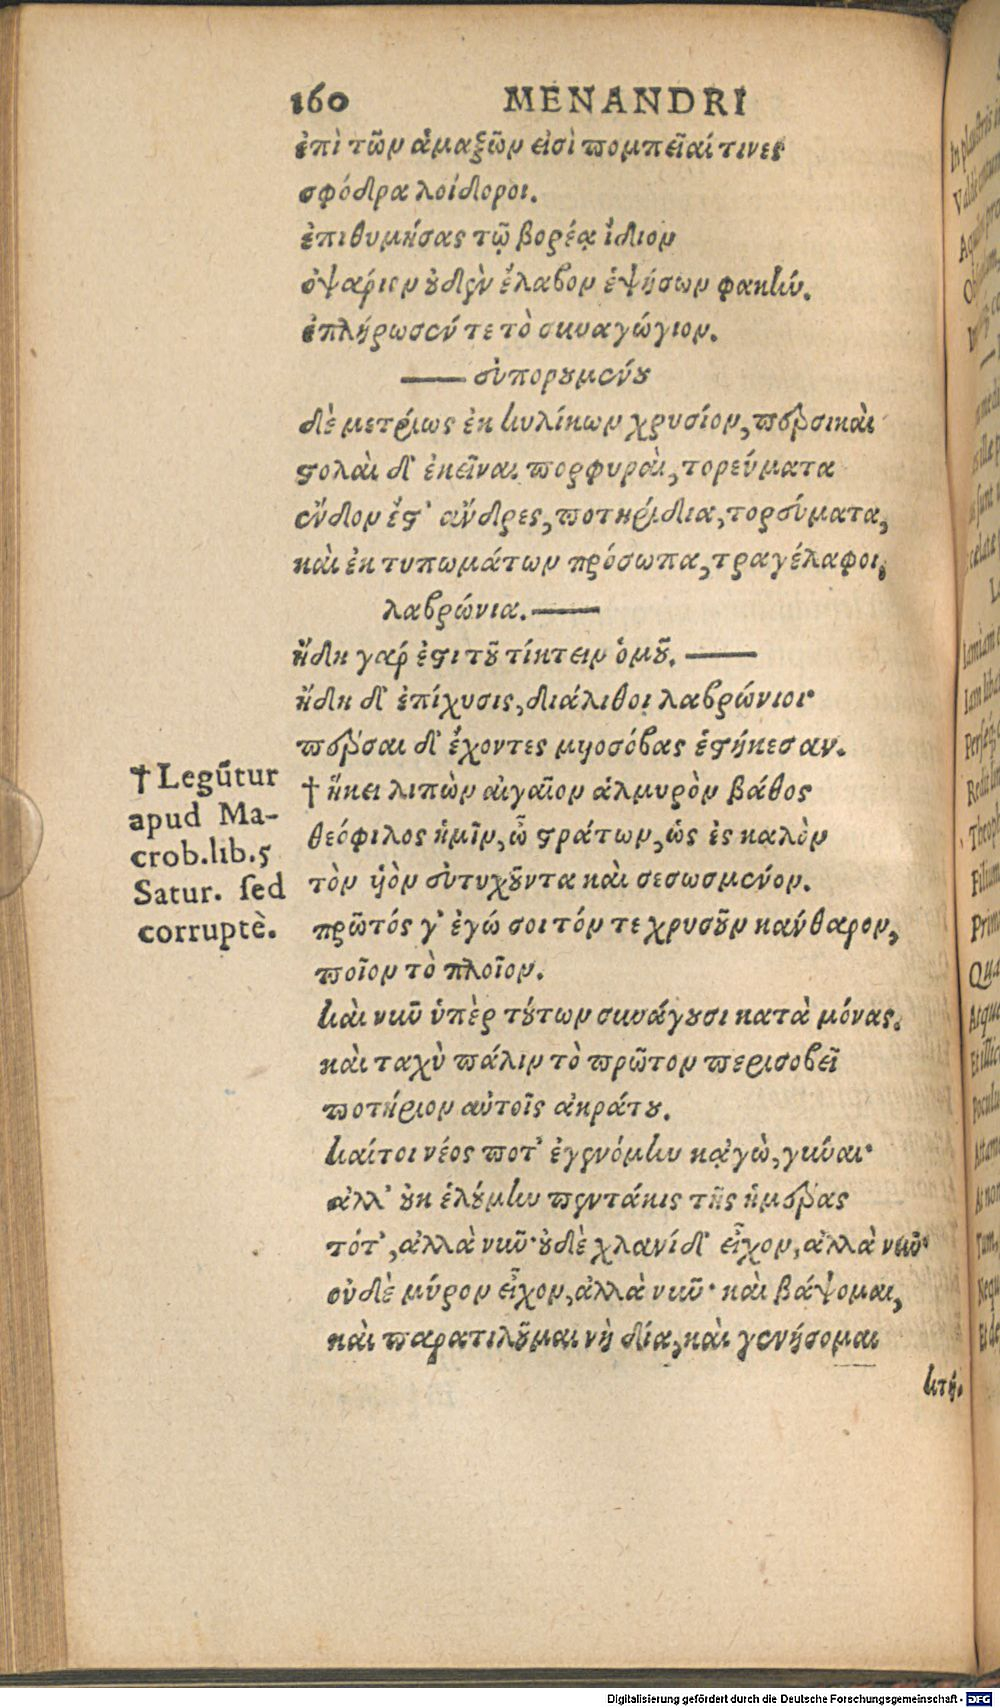 160 MENANDRI
ἐπὶ τῶν ἁμαξῶν εἰσὶ πομπεῖαί τινες
σφόδρα λοίδοροι.
ἐπιθυμήσας τῷ βορέᾳ ἴδιον
ὀψάριον οὐδὲν ἔλαβον ἑψήσων φακῆν.
ἐπλήρωσέν τε τὸ συναγώγιον.
—— εὐπορουμένου
δὲ μετρίως ἐκ κυλίκων χρυσίον, περσικαὶ
στολαὶ δ' ἐκεῖναι πορφυραὶ, τορεύματα
ἔνδον ἔστ' ἄνδρες, ποτηρίδια, τορεύματα,
καὶ ἐκτυπωμάτων πρόσωπα, τραγέλαφοι,
λαβρώνια. ——
ἤδη γάρ ἐστι τοῦ τίκτειν ὁμοῦ. ——
ἤδη δ' ἐπίχυσις, διάλιθοι λαβρώνιοι·
πέρσαι δ' ἔχοντες μυοσόβας ἑστήκεσαν.
† ἥκει λιπὼν αἰγαῖον ἁλμυρὸν βάθος
θεόφιλος ἡμῖν, ὦ στράτων, ὡς ἐς καλὸν
τὸν υἱὸν εὐτυχοῦντα καὶ σεσωσμένον.
πρῶτός γ' ἐγώ σοι τόν τε χρυσοῦν κάνθαρον,
ποῖον τὸ πλοῖον.
καὶ νῦν ὑπὲρ τούτων συνάγουσι κατὰ μόνας.
καὶ ταχὺ πάλιν τὸ πρῶτον περισοβεῖ
ποτήριον αὐτοῖς ἀκράτου.
καίτοι νέος ποτ' ἐγενόμην κᾀγὼ, γύναι·
ἀλλ' οὐκ ἐλούμην πεντάκις τῆς ἡμέρας
τότ', ἀλλὰ νῦν· οὐδὲ χλανίδ' εἶχον, ἀλλὰ νῦν·
οὐδὲ μύρον εἶχον, ἀλλὰ νῦν· καὶ βάψομαι,
καὶ παρατιλοῦμαι νὴ δία, καὶ γενήσομαι
κτή.
† Legūtur
apud Ma-
crob. lib. 5
Satur. sed
corruptè.
Digitalisierung gefördert durch die Deutsche Forschungsgemeinschaft - DFG